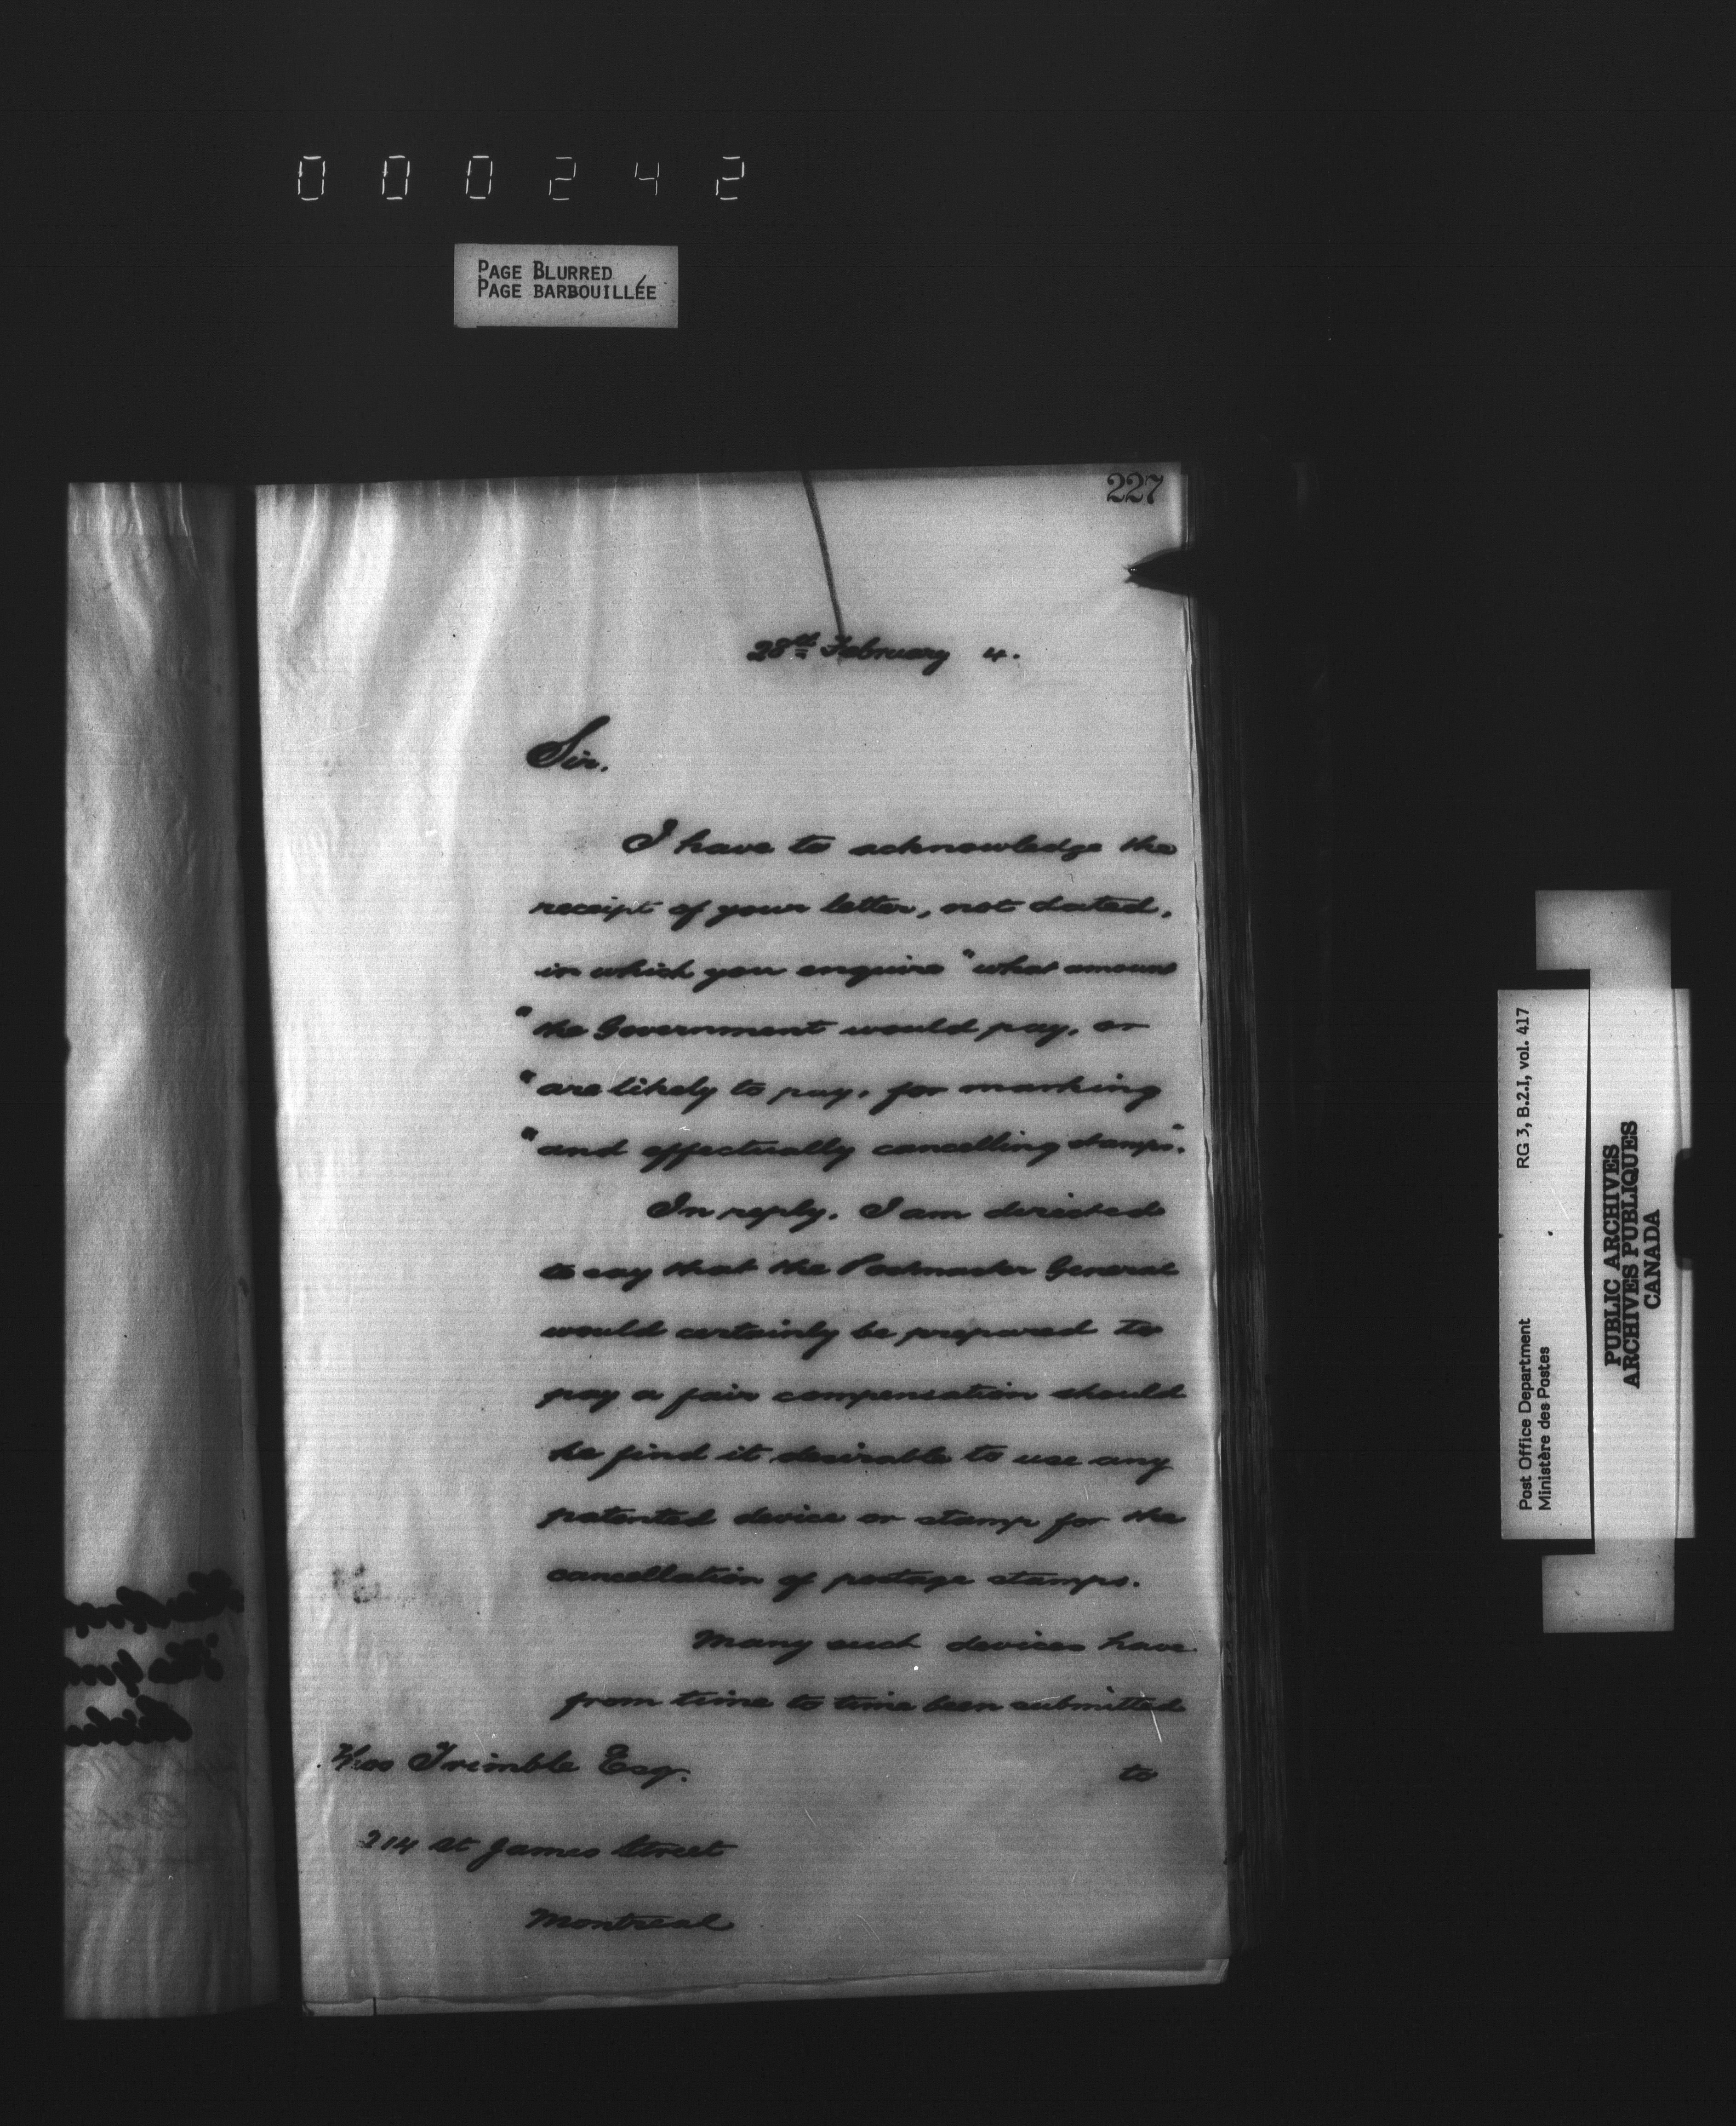 000242
PAGE BLURRED
PAGE BARBOUILLÉE
227
28th February 4.
Sir.
I have to acknowledge the
receipt of your letter, not dated,
in which you enquire "what amount
"the Government would pay, or
"are likely to pay, for marking
"and effectually cancelling stamps".
In reply, I am directed
to say that the Postmaster General
would certainly be prepared to
pay a fair compensation should
he find it desirable to use any
patented device or stamp for the
cancellation of postage stamps.
Many such devices have
from time to time been submitted
to
Thos Trimble Esq.
214 St James Street
Montreal
RG 3, B.2.I, vol. 417
Post Office Department
Ministère des Postes
PUBLIC ARCHIVES
ARCHIVES PUBLIQUES
CANADA